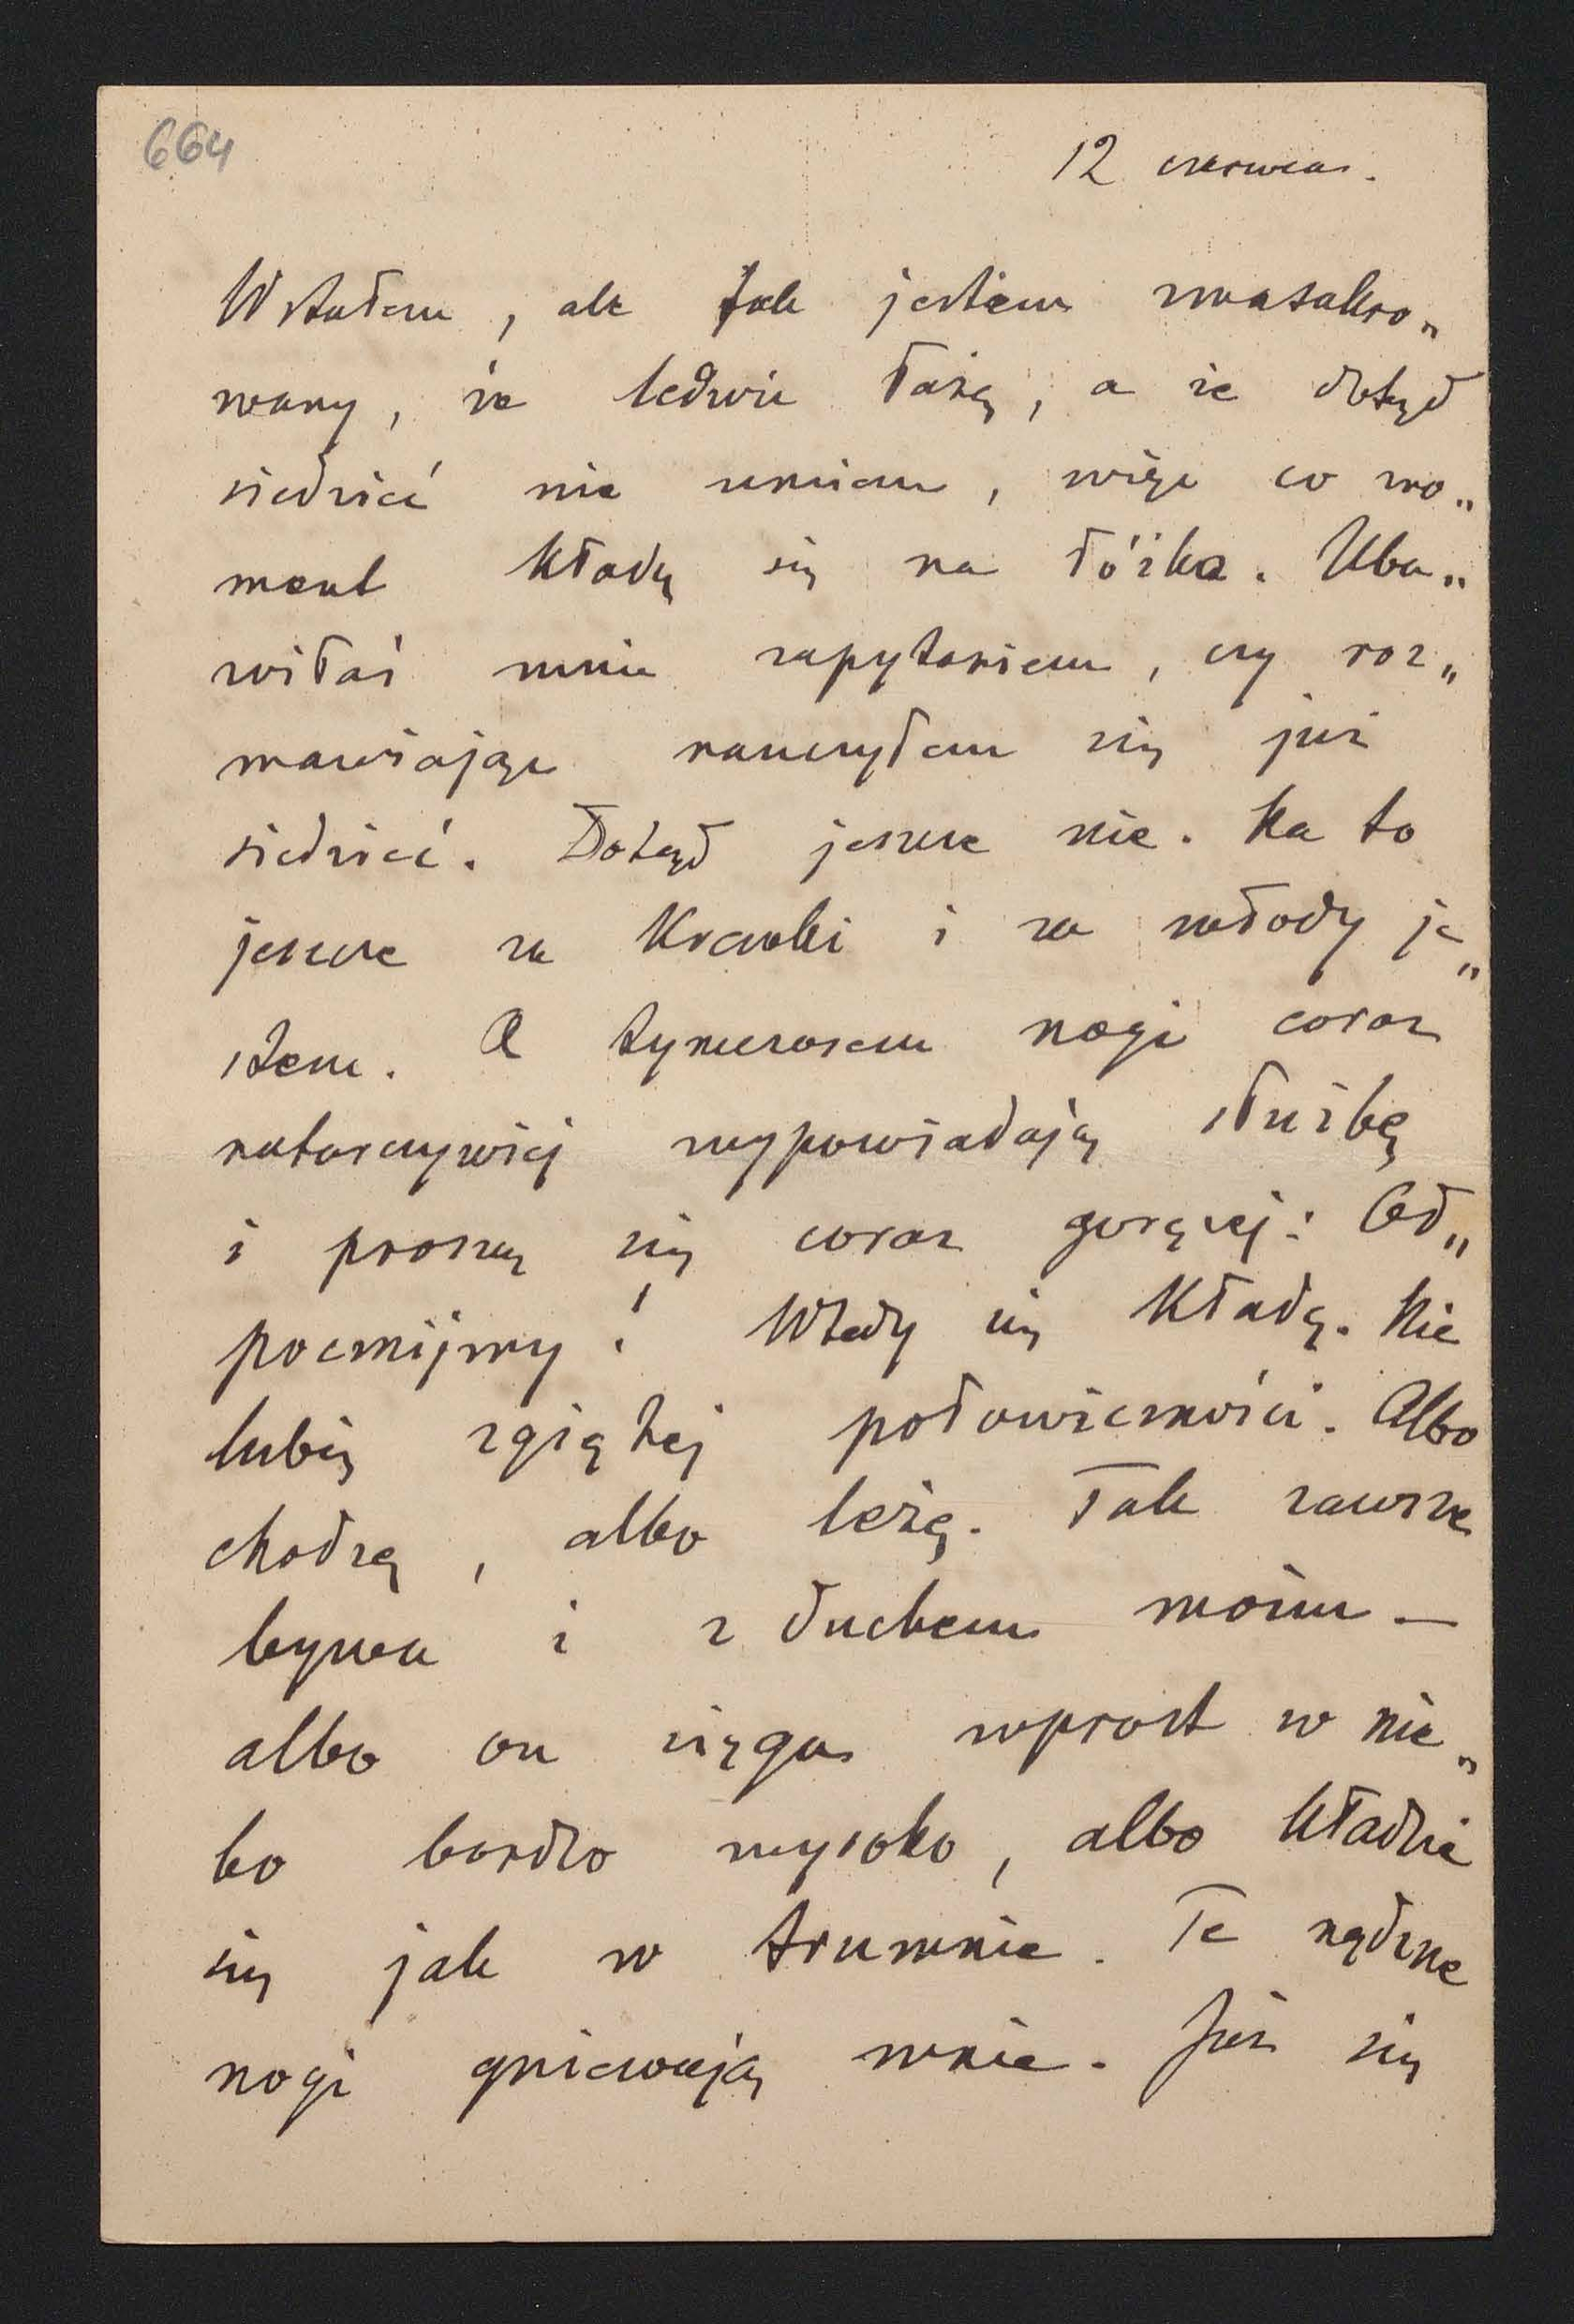 664
12 czerwca.
Wstałem, ale tak jestem zmasakro„
wany, że ledwie łażę, a że dotąd
siedzieć nie umiem, więc co mo„
ment kładę się na łóżko. Uba„
wiłaś mnie zapytaniem, czy roz„
mawiając nauczyłem się już
siedzieć. Dotąd jeszcze nie. Na to
jeszcze za krewki i za młody je„
stem. A tymczasem nogi coraz
natarczywiej wypowiadają służbę
i proszą się coraz goręcej: Od„
pocznijmy! Wtedy się kładę. Nie
lubię zgiętej połowiczności. Albo
chodzę, albo leżę. Tak zawsze
bywa i z duchem moim —
albo on sięga wprost w nie„
bo bardzo wysoko, albo kładzie
się jak w trumnie. Te nędzne
nogi gniewają mnie. Już się